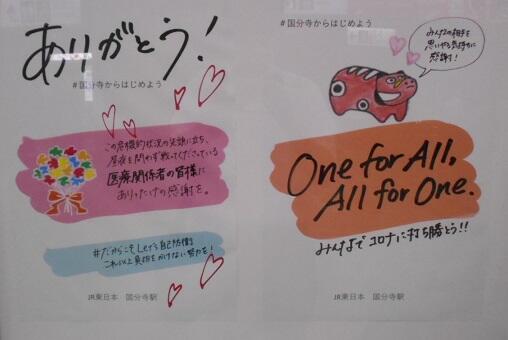 ありがとう!
#国分寺からはじめよう
この危機的状況の先頭に立ち、
昼夜を問わず戦ってくださっている
医療関係者の皆様に
ありったけの感謝を。
#だからこそLet's自己防衛
これ以上負担をかけない努力を!
JR東日本 国分寺駅
#国分寺からはじめよう
みんなの相手を
思いやる気持ちに
感謝!
One for All,
All for One.
みんなでコロナに打ち勝とう!!
JR東日本 国分寺駅